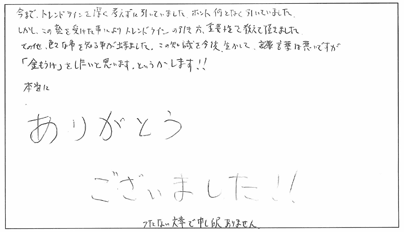 今まで、トレンドラインを深く考えずに引いていました。ホント何となく引いていました。
しかし、この塾を受けた事によりトレンドラインの引き方、重要性を教えて頂きました。
その他、色々な事を知る事が出来ました。この知識を今後、生かして、言葉は悪いですが
「金もうけ」をしたいと思います。というかします!!
本当に
ありがとう
ございました!!
つたない文章で申し訳ありません。